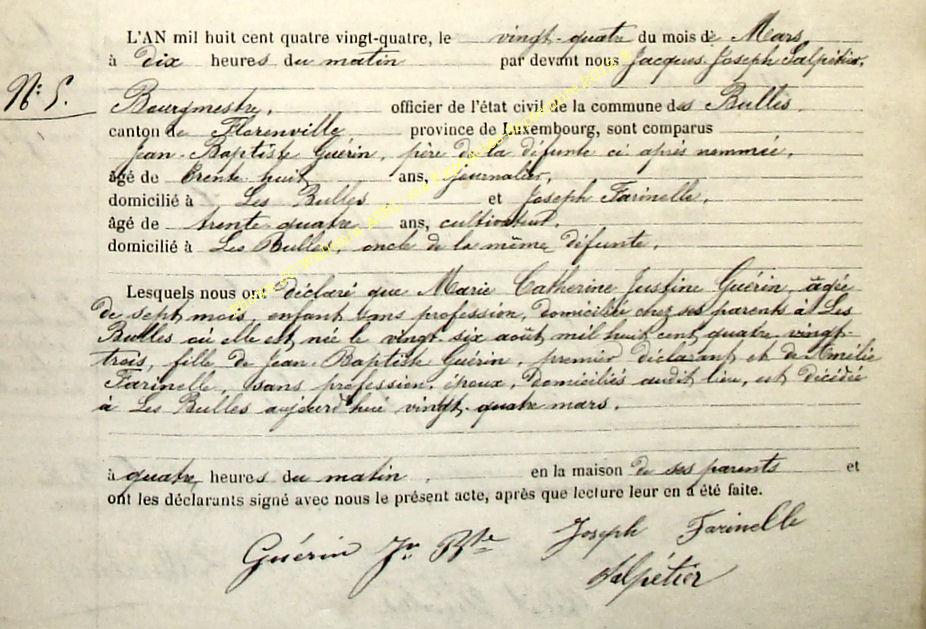 L'AN mil huit cent quatre vingt-quatre, le vingt-quatre du mois de Mars,
à dix heures du matin par devant nous Jacques Joseph Salpétier,
N: 5. Bourgmestre, officier de l'état civil de la commune des Bulles
canton de Florenville province de Luxembourg, sont comparus
Jean-Baptiste Guérin, père de la défunte ci après nommée,
âgé de trente huit ans, journalier,
domicilié à Les Bulles et Joseph Farinelle,
âgé de trente-quatre ans, cultivateur,
domicilié à Les Bulles, oncle de la même défunte,
Lesquels nous ont déclaré que Marie Catherine Justine Guérin, âgée
de sept mois, enfant sans profession, domiciliée chez ses parents à Les
Bulles où elle est née le vingt-six août mil huit cent quatre-vingt-
trois, fille de Jean-Baptiste Guérin, premier déclarant et de Amélie
Farinelle, sans profession, époux, domiciliés audit lieu, est décédée
à Les Bulles aujourd'hui vingt-quatre mars,
à quatre heures du matin, en la maison de ses parents et
ont les déclarants signé avec nous le présent acte, après que lecture leur en a été faite.
Guérin Jn Bte Joseph Farinelle
Salpétier